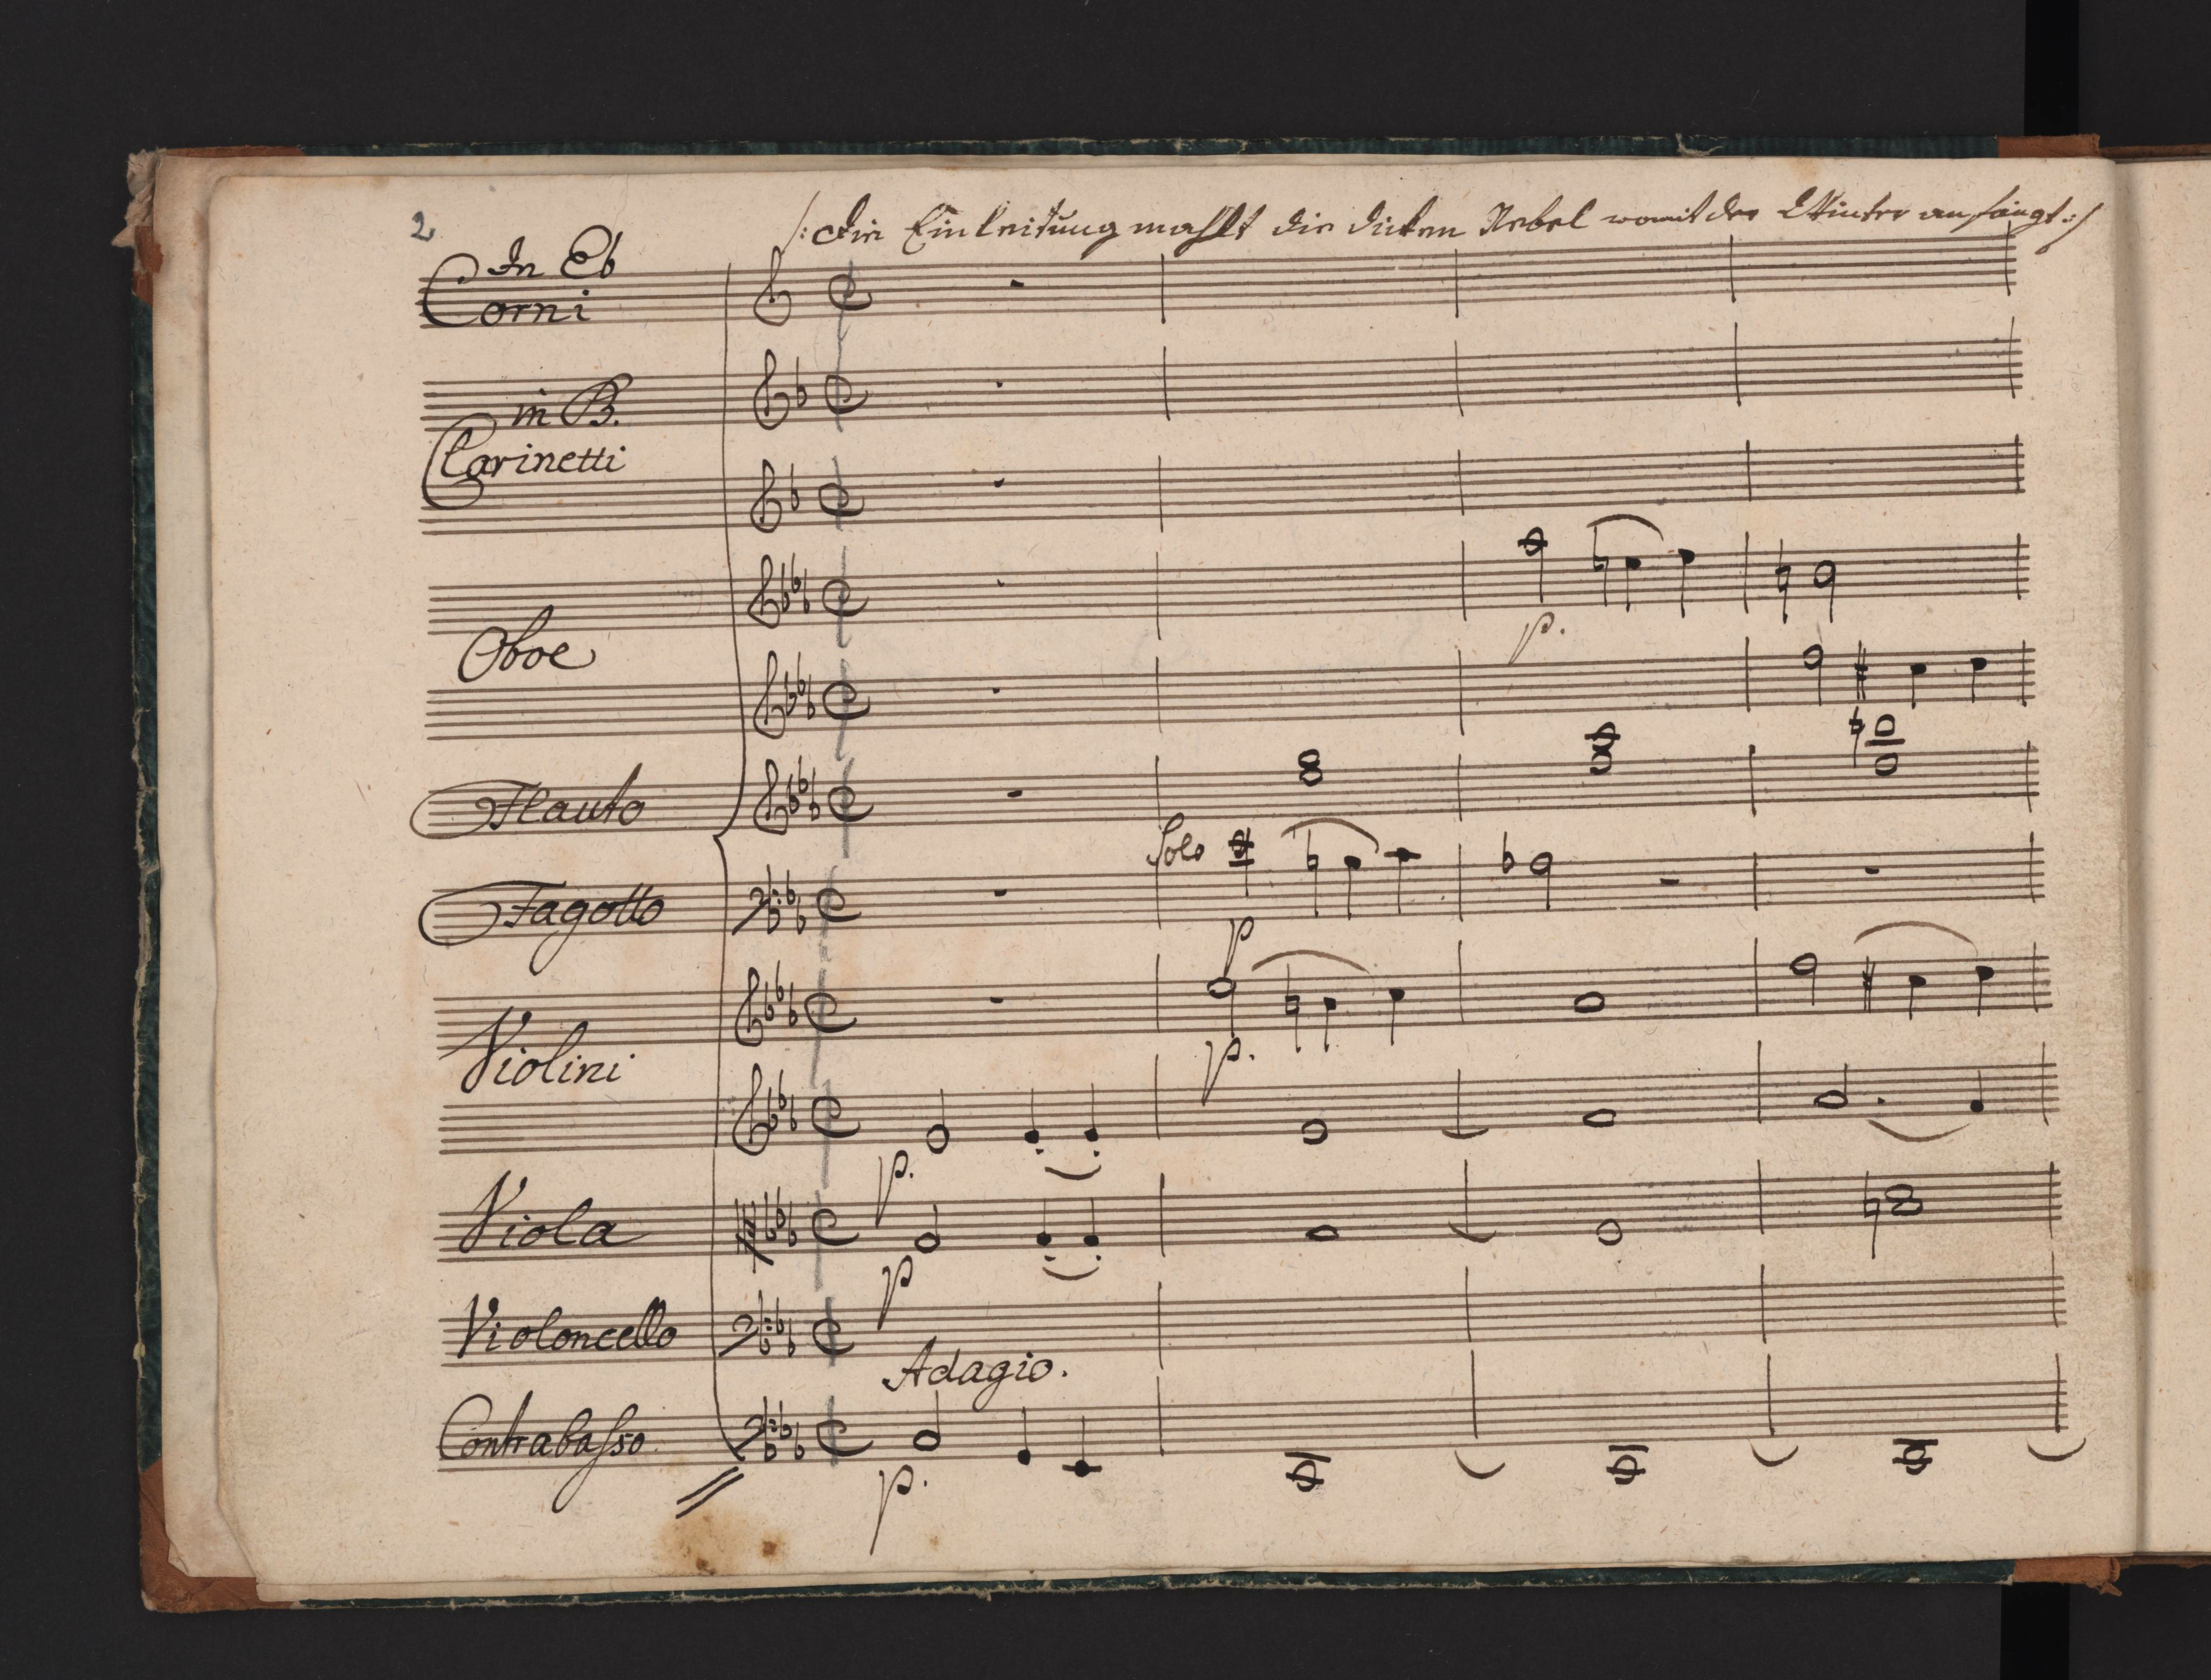 2
/: Die Einleitung mahlt die dicken Nebel womit der Winter anfängt :/
In Eb
Corni
in B.
Clarinetti
Oboe
p.
Flauto
Solo
Fagotto
p
Violini
p.
p.
Viola
p
Violoncello
Adagio.
Contrabaſso
p.